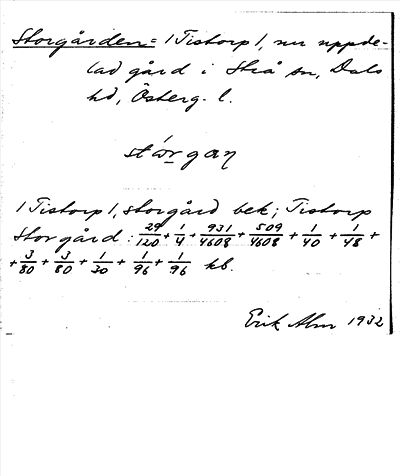 Storgården = / Tistorp /, nu uppde-
lad gård i Strå sn, Dals
hd, Österg. l.
stórgan
/ Tistorp /, storgård bek; Tistorp
Storgård: 29/120 + 1/4 + 931/4608 + 509/4608 + 1/40 + 1/48 +
+ 3/80 + 3/80 + 1/30 + 1/96 + 1/96 hb.
Erik Alm 1932